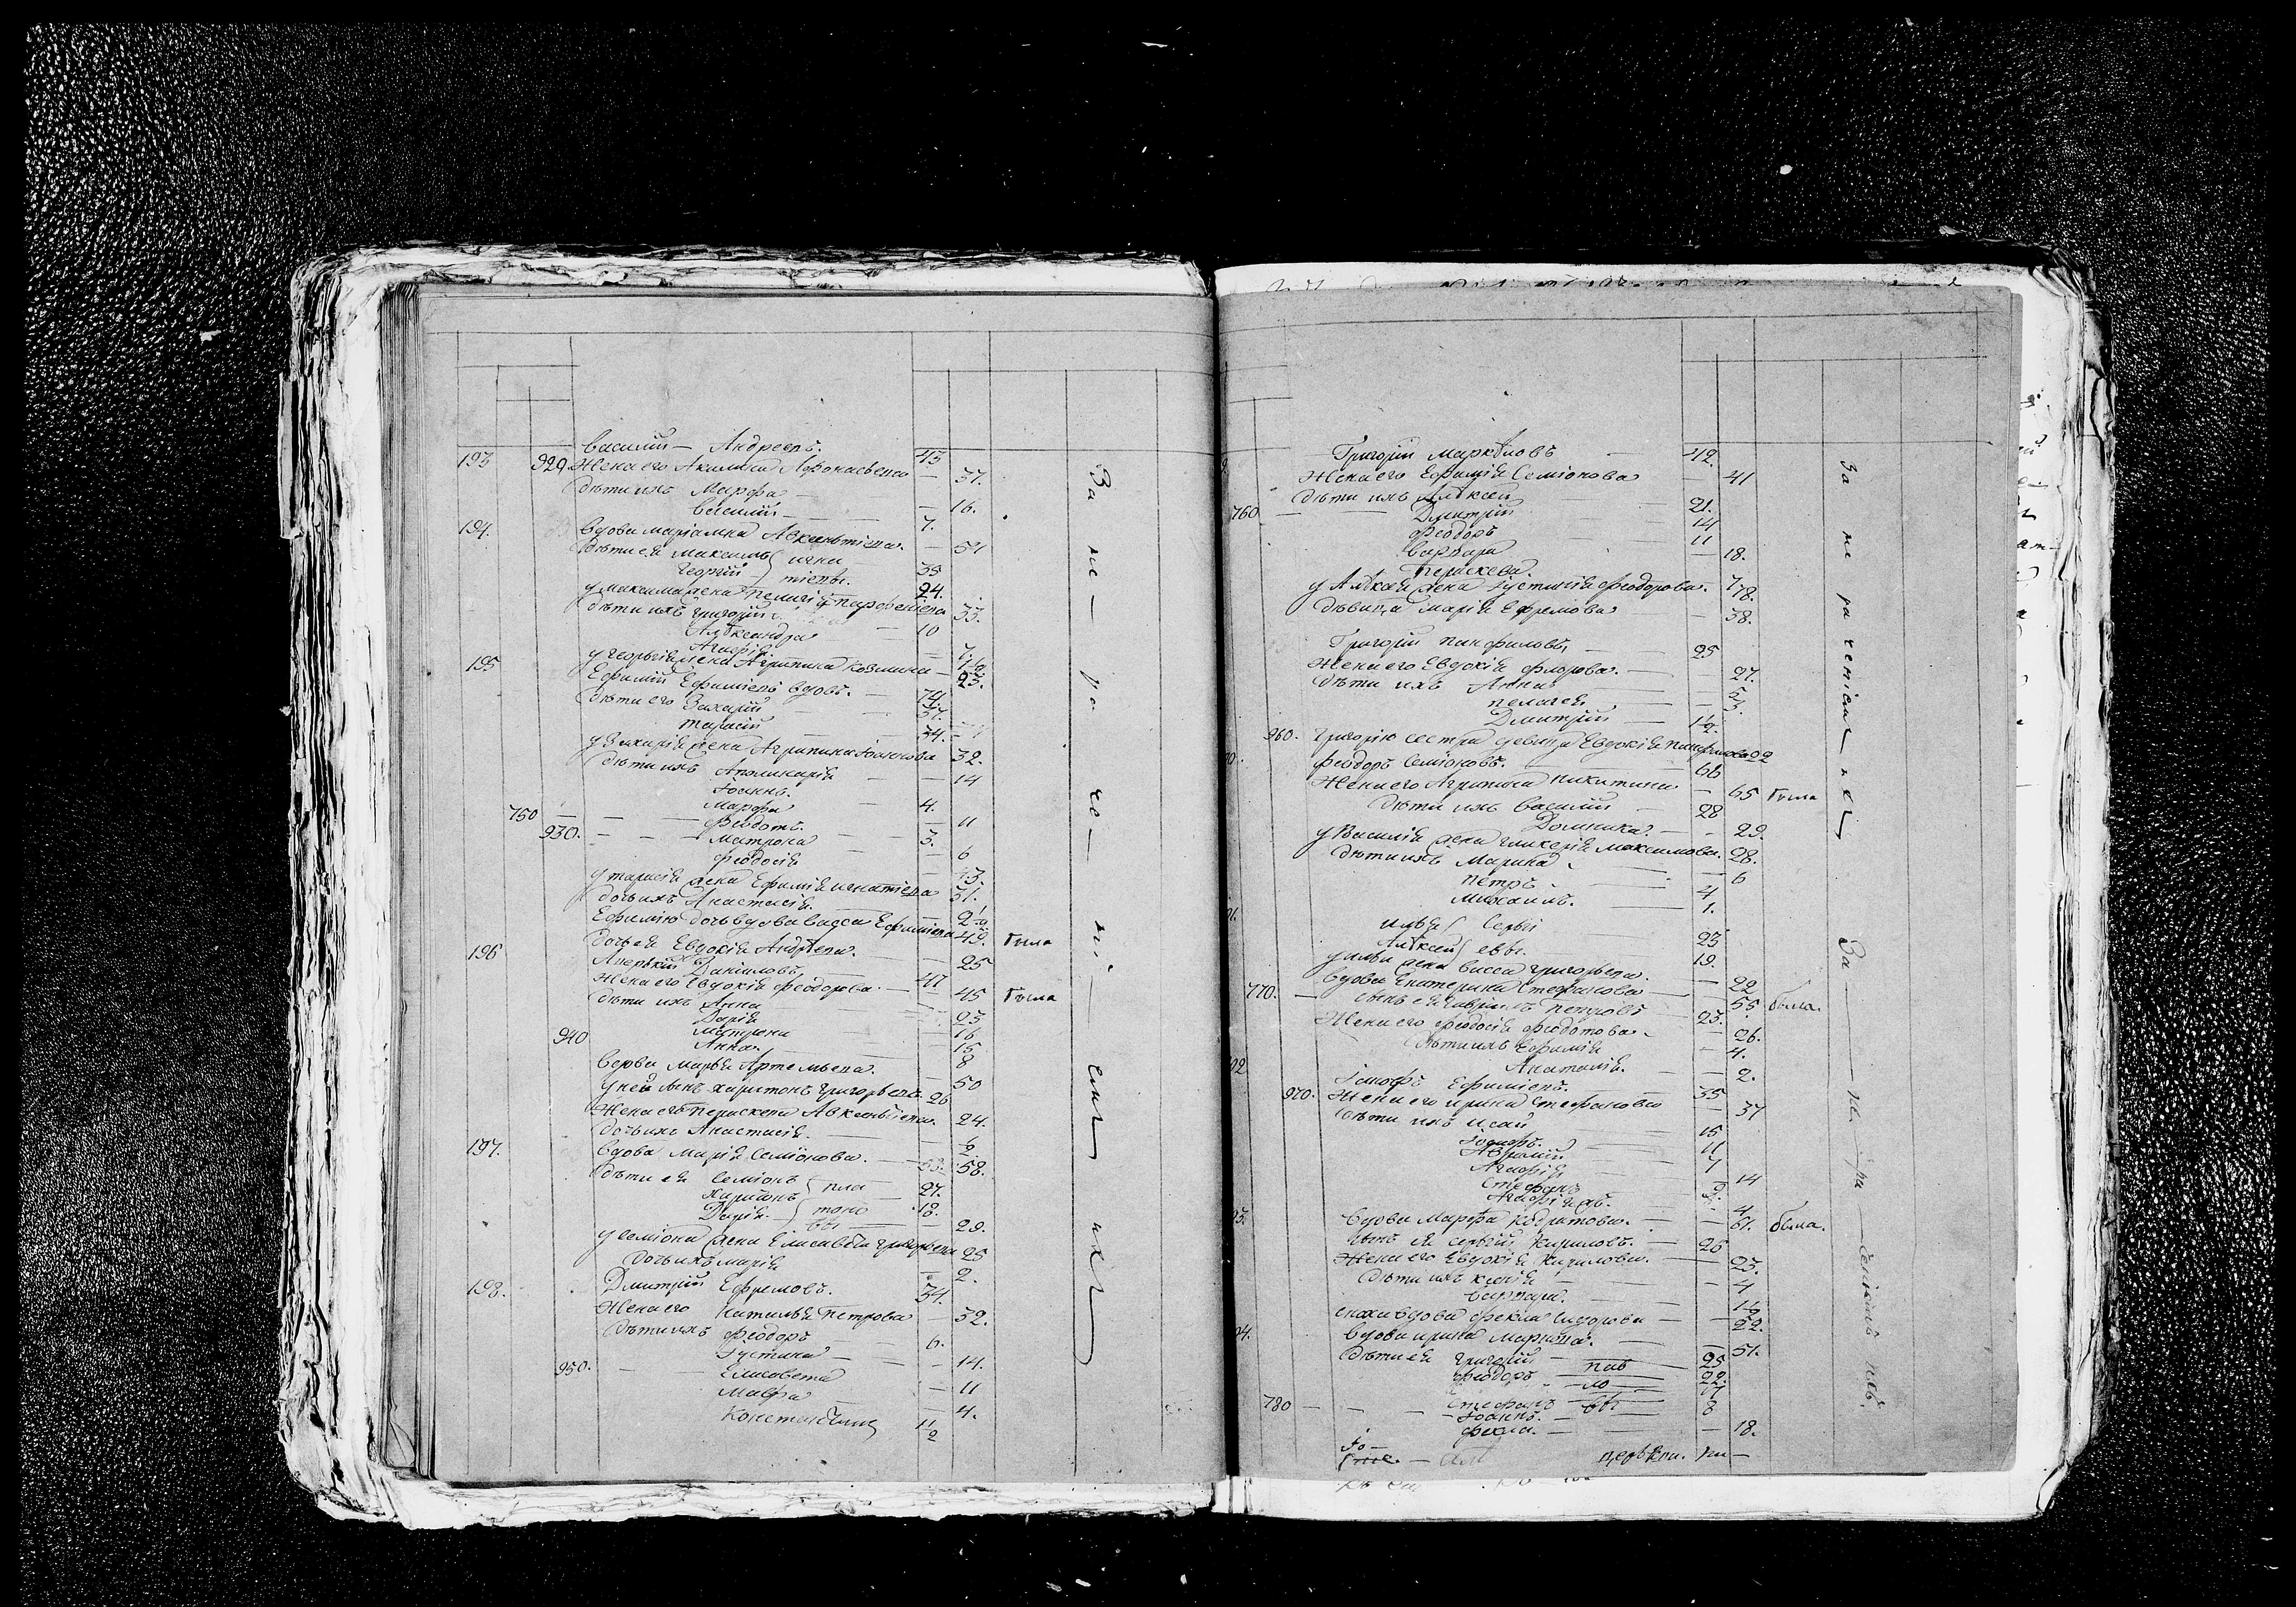 Василій Андреевъ. 43
193 929 Жена его Акилина Афонасьева 37.
Дѣти ихъ Марфа 16.
Василій 7.
194. Вдова Маріамна Авксентіева. 51
Дѣти ея Максимъ игна 35
Георгій тіевы. 24.
у Максима жена Пелагія Парфеніева 33.
Дѣти ихъ Григорій 10
Алѣксандра 7.
Агафія 1 1/2
у Георгія жена Агрипина Козмина 23.
195 Ефимій Ефиміевъ вдовъ. 74
Дѣти его Захарій 37.
Тарасій 34.
у Захарія жена Агрипина Іоаннова 32.
Дѣти ихъ Аполинарія 14
Іоаннъ. 4.
Марфа 11
750 Феодотъ. 3.
930. Матрона 6
Феодосія 3.
у Тарасія жена Ефимія Игнатіева 31.
Дочь ихъ Анастасія. 2 1/2
Ефимію дочь вдова Васса Ефиміева 49. была
Дочь ея Евдокія Андреева. 25
196 Аверкій Даніиловъ 47
Жена его Евдокія Феодорова. 45 была
Дѣти ихъ Анна 23
Дарія 16
Матрона 15
940 Анна. 8
Вдова Марья Артемьева. 50
у ней сынъ Харитонъ Григорьевъ 26
Жена его Параскева Авксентіева. 24.
Дочь ихъ Анастасія. 1/2
197. Вдова Марія Семіонова. 58.
Дѣти ея Семіонъ пла 27.
Харитонъ тоно 18.
Дарія. вы 29.
у Семіона жена Елисавета Григорьева 25
Дочь ихъ Марія 2.
198. Дмитрій Ефремовъ. 34.
Жена его Наталья Петрова 32.
Дѣти ихъ Феодоръ 6.
Іустина 14.
950. Елисавета 11
Мавра 4.
Константинъ 1 1/2
За не ра че ні емъ ихъ
Григорій 42.
Жена его Ефимія Семіонова 41
Дѣти ихъ Алѣксей 21.
760 Дмитрій 14
Феодоръ 11
Варвара 18.
Параскева. 7
у Алѣксея жена Іустинія Феодорова. 18.
Дѣвица Марія Ефремова 38.
Григорій Панфиловъ 25
Жена его Евдокія Флорова. 27.
Дѣти ихъ Анна 5
Пелагея 3.
Дмитрій 1 1/2
960. Григорію сестра девица Евдокія Панфилова 22
Феодоръ Семіоновъ. 66
Жена его Агрипина Никитина 65 была
Дѣти ихъ Василій 28
Домника. 29.
у Василія жена Гликерія Максимова. 28.
Дѣти ихъ Марина 6
Петръ 4
Михаилъ. 1.
Илья Серъгі 23
Алѣксей евы. 19.
у Ильи жена Васса Григорьева. 22
Вдова Екатерина Стефанова 55 была.
770. Сынъ ея Гавріилъ Петровъ 23.
Жена его Феодосія Федотова. 26.
Дѣти ихъ Ефимія 4.
Анатолія. 2.
Іосифъ Ефиміевъ. 35
970. Жена его Ирина Стефанова 37
Дѣти ихъ Исай 15
Іосифъ. 11
Аврамій 7
Агафія 14
Стефанъ 3.
Агафія. 4
Вдова Марфа Кодратова. 61. была.
Сынъ ея Сергій Кириловъ. 26
Жена его Евдокія Кирилова. 23.
Дѣти ихъ Ксенія 4
Варвара. 1 1/2
Сноха вдова Фекла Сидорова 22.
Вдова Ирина 51.
Дѣти ея Григорій пав 25
Феодоръ ло 22.
780 Стефанъ вы 17
Іоаннъ. 8
Фекла. 18.
За не ра ченіемъ ихъ
За не ра ченіемъ ихъ.
церькви.